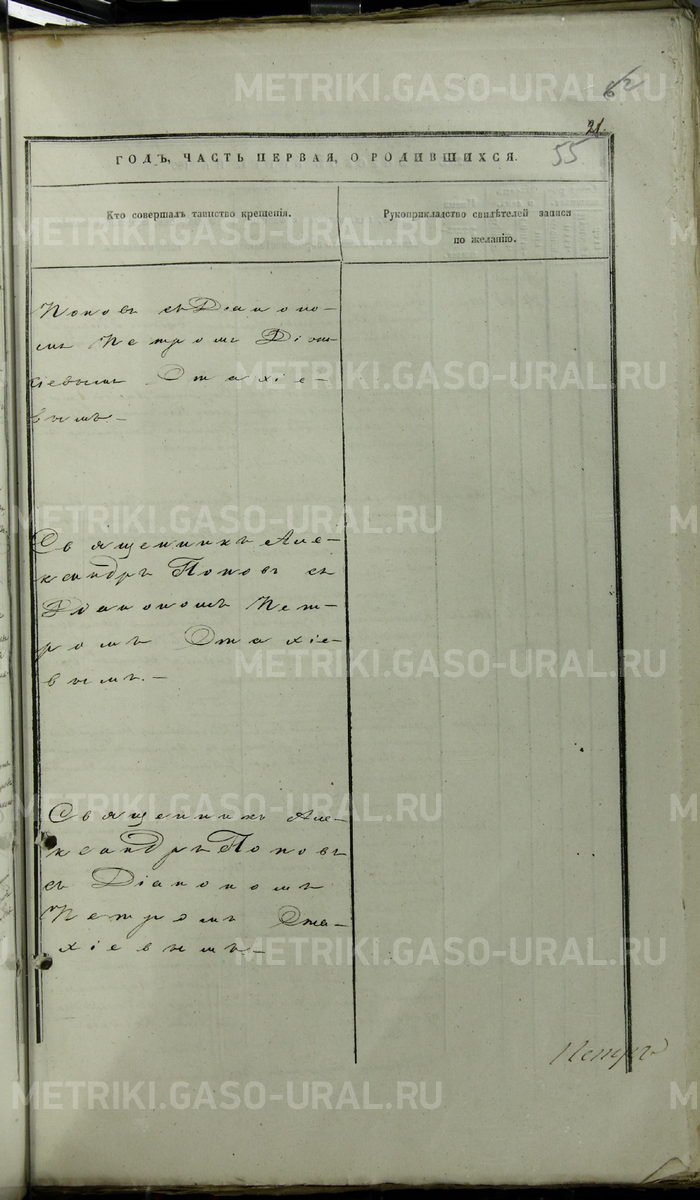 62
21.
55
ГОДЪ, ЧАСТЬ ПЕРВАЯ, О РОДИВШИХСЯ.
Кто совершалъ таинство крещенія.
Рукоприкладство свидѣтелей записи
по желанію.
Поповъ съ Діаконо-
мъ Петромъ
Стахіе-
вымъ –
Священникъ Але-
ксандръ Поповъ съ
Діакономъ Пет-
ромъ Стахіе-
вымъ. –
Священникъ Але-
ксандръ Поповъ
съ Діакономъ
Петромъ Ста-
хіевымъ –
METRIKI.GASO-URAL.RU
METRIKI.GASO-URAL.RU
METRIKI.GASO-URAL.RU
METRIKI.GASO-URAL.RU
METRIKI.GASO-URAL.RU
METRIKI.GASO-URAL.RU
METRIKI.GASO-URAL.RU
METRIKI.GASO-URAL.RU